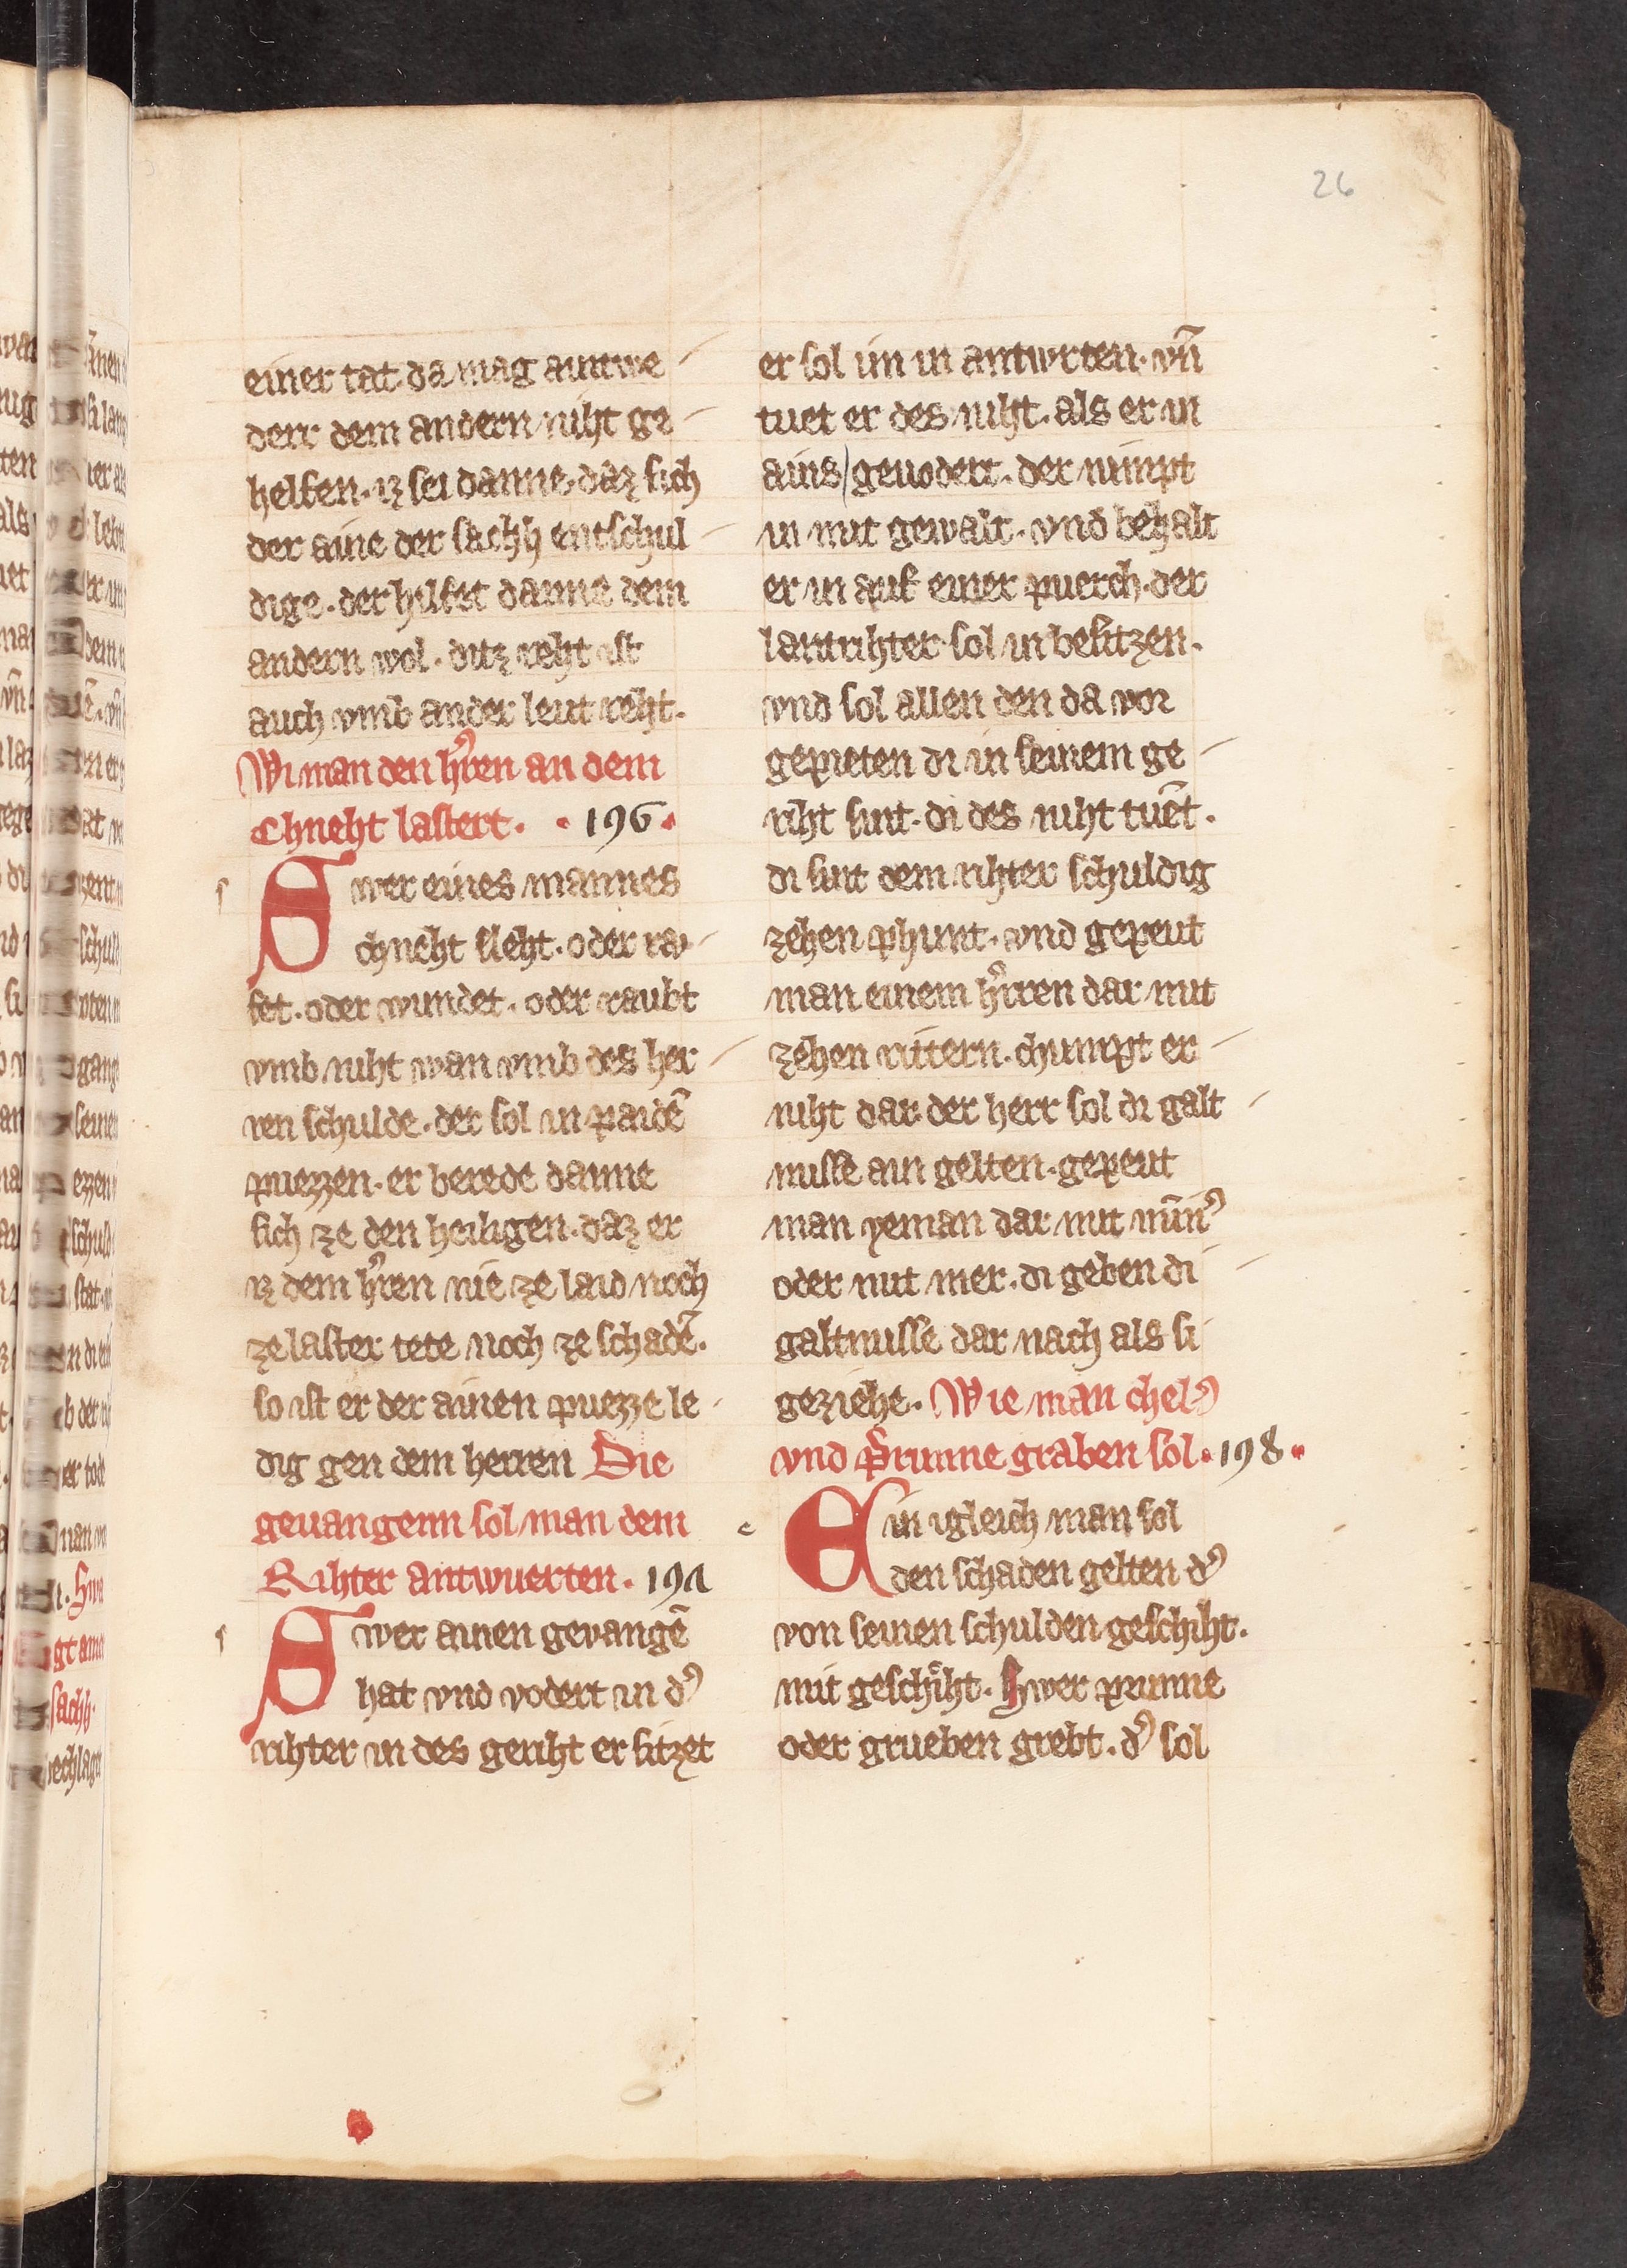 26
einer tat da mag aintwe
derr dem andern niht ge
helfen. iz sei danne. daz sich
der aine der sachh entschul
dige. der hilfet danne dem
andern wol. ditz reht ist
auch vmb ander leut reht.
Wi man den h̾ren an dem
chneht lastert. · 196 ·
Swer eines mannes
chneht sleht. oder ra
fet. oder wundet. oder raubt
vmb niht wan vmb des her
ren schulde. der sol in paidē
puezzen. er berede danne
sich ze den heiligen. daz er
iz dem h̾ren nie ze laid noch
ze laster tete noch ze schadē.
so ist er der ainen puezze le
dig gen dem herren Die
geuangenn sol man dem
Rihter antwuerten. 197
Swer ainen gevangē
hat vnd vodert in d̾
rihter in des geriht er sitzet
er sol im in antwrten. vn̄
tuet er des niht. als er in
ains geuodert. der nimpt
in mit gewalt. vnd behalt
er in auf einer puerch. der
lantrihter sol in besitzen.
vnd sol allen den da vor
gepieten di in seinem ge
riht sint. di des niht tuēt.
di sint dem rihter schuldig
zehen phunt. vnd gepeut
man einem h̾rren dar mit
zehen rittern. chumpt er
niht dar. der herr sol di galt
nusse ain gelten. gepeut
man yeman dar mit min̄̾
oder mit mer. di geben di
galtnusse dar nach als si
geziehe. Wie man chel̾
vnd Prunne graben sol. 198 ·
Ein igleich man sol
den schaden gelten d̾
von seinen schulden geschiht.
mit geschiht. Swer prunne
oder grueben grebt. d̾ sol